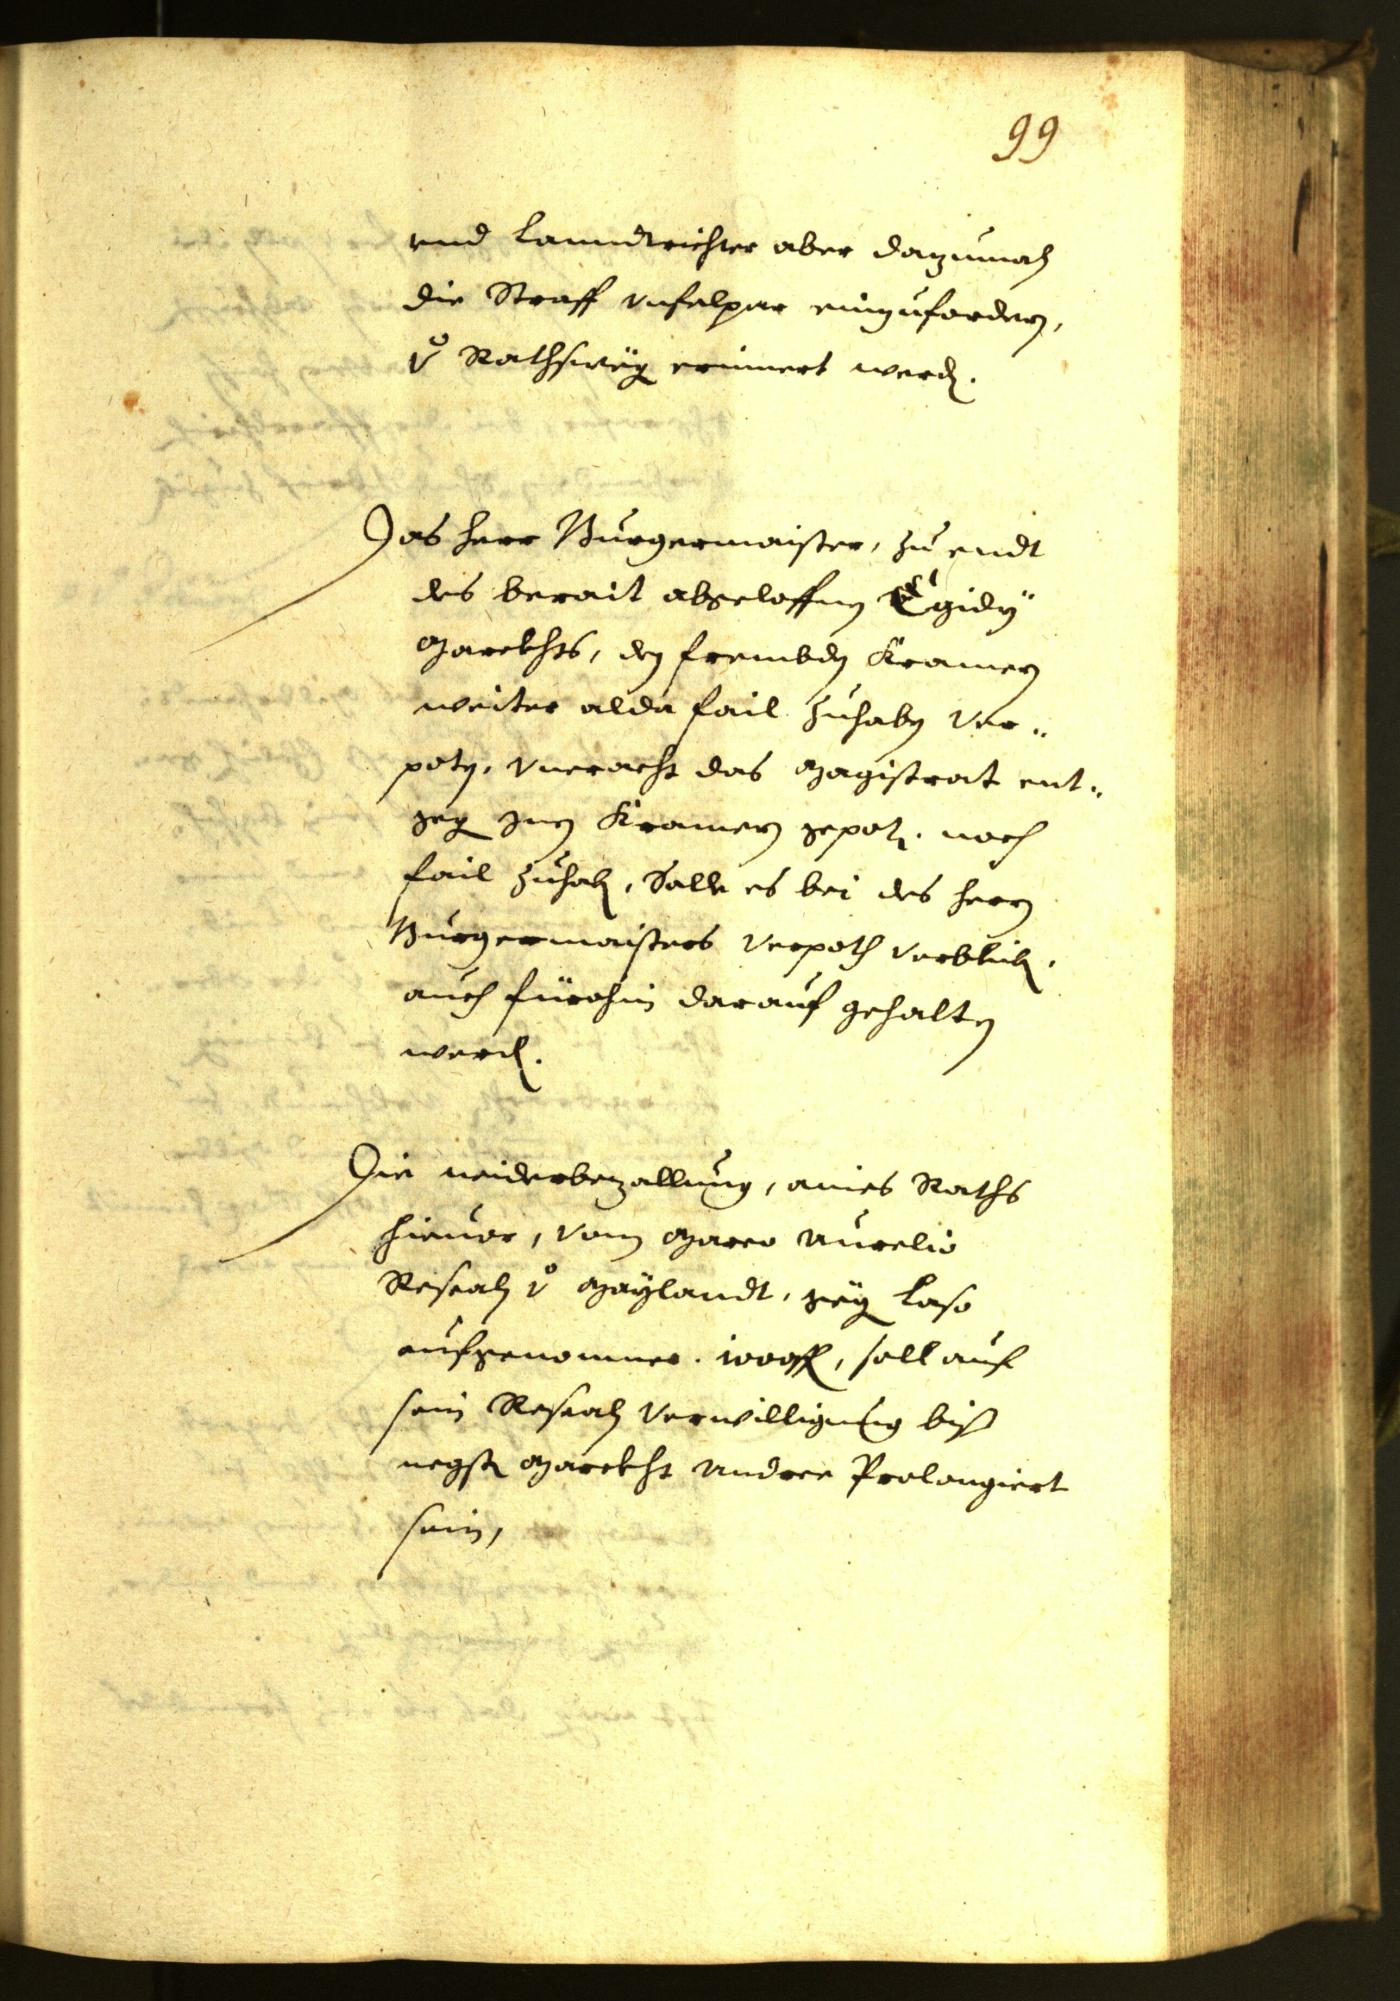 99
vnd Lanndtrichter aber dazumahl
die Straff vnfelpar einzufordern,
von Rathswegen erinnert werden.
Das herr Burgermaister, zu endt
des berait abgeloffnen Egidy
Marckhts, den frembden Kramern
weiter alda fail zuhaben ver-
poten, vneracht das Magistrat ent-
gegen Inen Kramern gepoten, noch
fail zuhaben, Solle es bei des herrn
Burgermaisters verpoth verbleiben,
auch fürohin darauf gehalten
werden.
Die widerbezallung, aines Raths
hieuor, vom Marco Aurelio
von Maylandt, gegen
aufgenomner 1000 fl, soll auf
sein verwilligung biß
negsten Marckht Andree Prolongiert
sein,